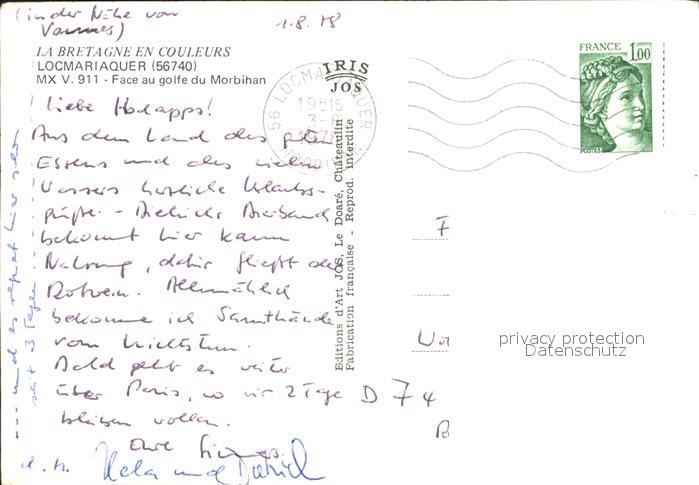 (in der Nähe von
Vannes)
1.8.78
LA BRETAGNE EN COULEURS
LOCMARIAQUER (56740)
MX V. 911 - Face au golfe du Morbihan
IRIS
JOS
56 LOCMARIAQUER
19H15
3-8
FRANCE 1,00
POSTES
Liebe Holzapps!
Aus dem Land des guten
Essens und des vielen
Wassers herzliche Urlaubs-
grüße. - Dietrichs Bierbauch
bekommt hier kaum
Nahrung, dafür fließt der
Rotwein. Allmählich
bekomme ich Samthände
vom Nichtstun.
Bald geht es weiter
über Paris, wo wir 2 Tage
bleiben wollen.
Eure
u.
und Dietrich
... und es regnet hier schon
seit 3 Tagen
Editions d'Art JOS, Le Doaré, Châteaulin
Fabrication française - Reprod. interdite
F
D 74
privacy protection
Datenschutz